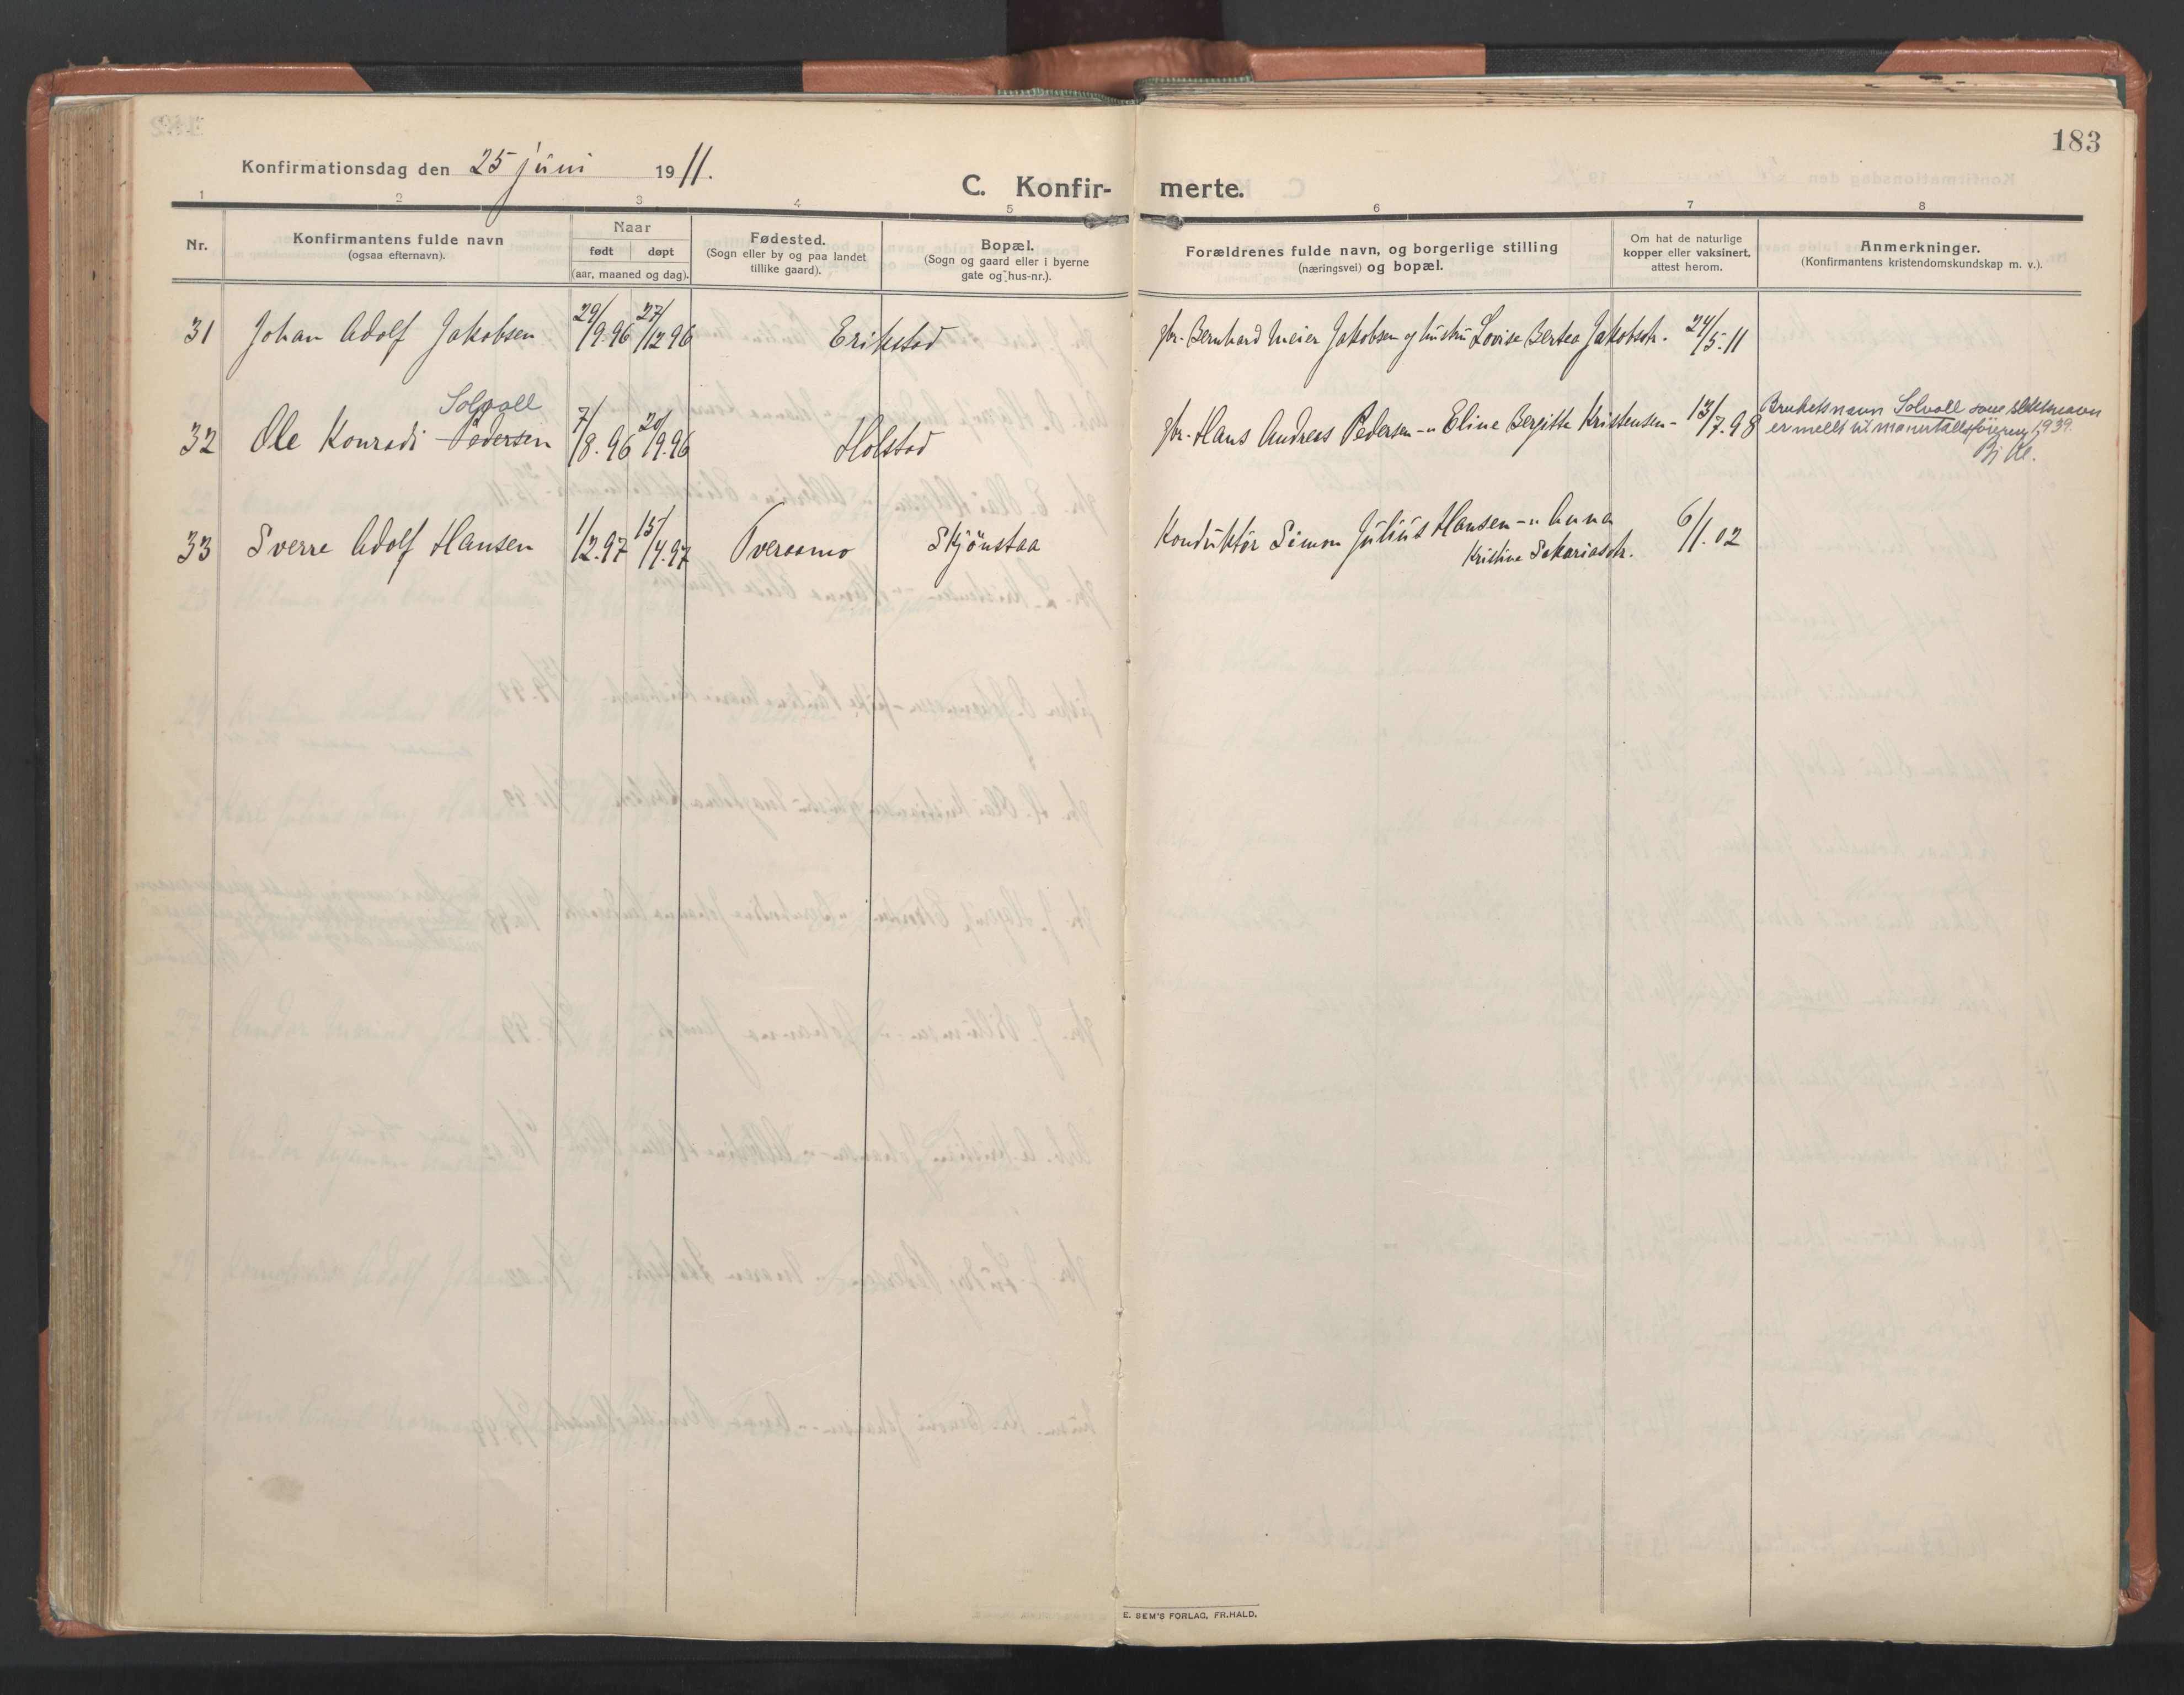 183
Konfirmationsdag den 25 juni 1911.
C. Konfir- merte.
1 2 3 4 5 6 7 8
Nr.
Konfirmantens fulde navn
(ogsaa efternavn).
Naar
født døpt
(aar, maaned og dag).
Fødested.
(Sogn eller by og paa landet
tillike gaard).
Bopæl.
(Sogn og gaard eller i byerne
gate og hus-nr.).
Forældrenes fulde navn, og borgerlige stilling
(næringsvei) og bopæl.
Om hat de naturlige
kopper eller vaksinert,
attest herom.
Anmerkninger.
(Konfirmantens kristendomskundskap m. v.).
31 Johan Adolf Jakobsen 29/9.96 27/12.96 Erikstad gbr. Bernhard Meier Jakobsen og hustru Lovise Bertea Jakobsdtr. 24/5.11
Solvoll
32 Ole Konradi Pedersen 7/8.96 20/9.96 Holstad gbr. Hans Andreas Pedersen -"- Eline Bergitte Kristensen- 13/7.98 Bruketsnavn Solvoll som slektsnavn
er meldt til manntallsføreren 1939.
33 Sverre Adolf Hansen 1/12.97 15/4.97 Tveraamo Skjönstaa Konduktör Simon Julius Hansen -"- Anna
Kristine Sakariasdtr. 6/1.02
E. SEM'S FORLAG, FR.HALD.